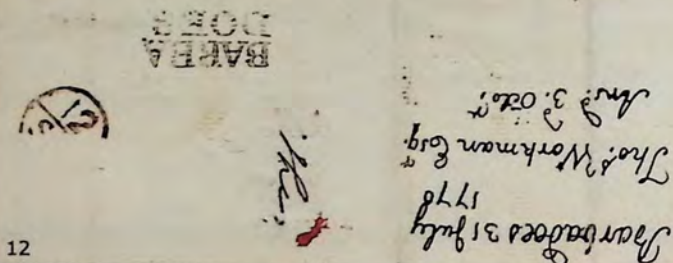 BARBA
DOES
Barbadoes 31 July
1778
Thos. Workman Esqr.
Ansd. 3. Octor.
12